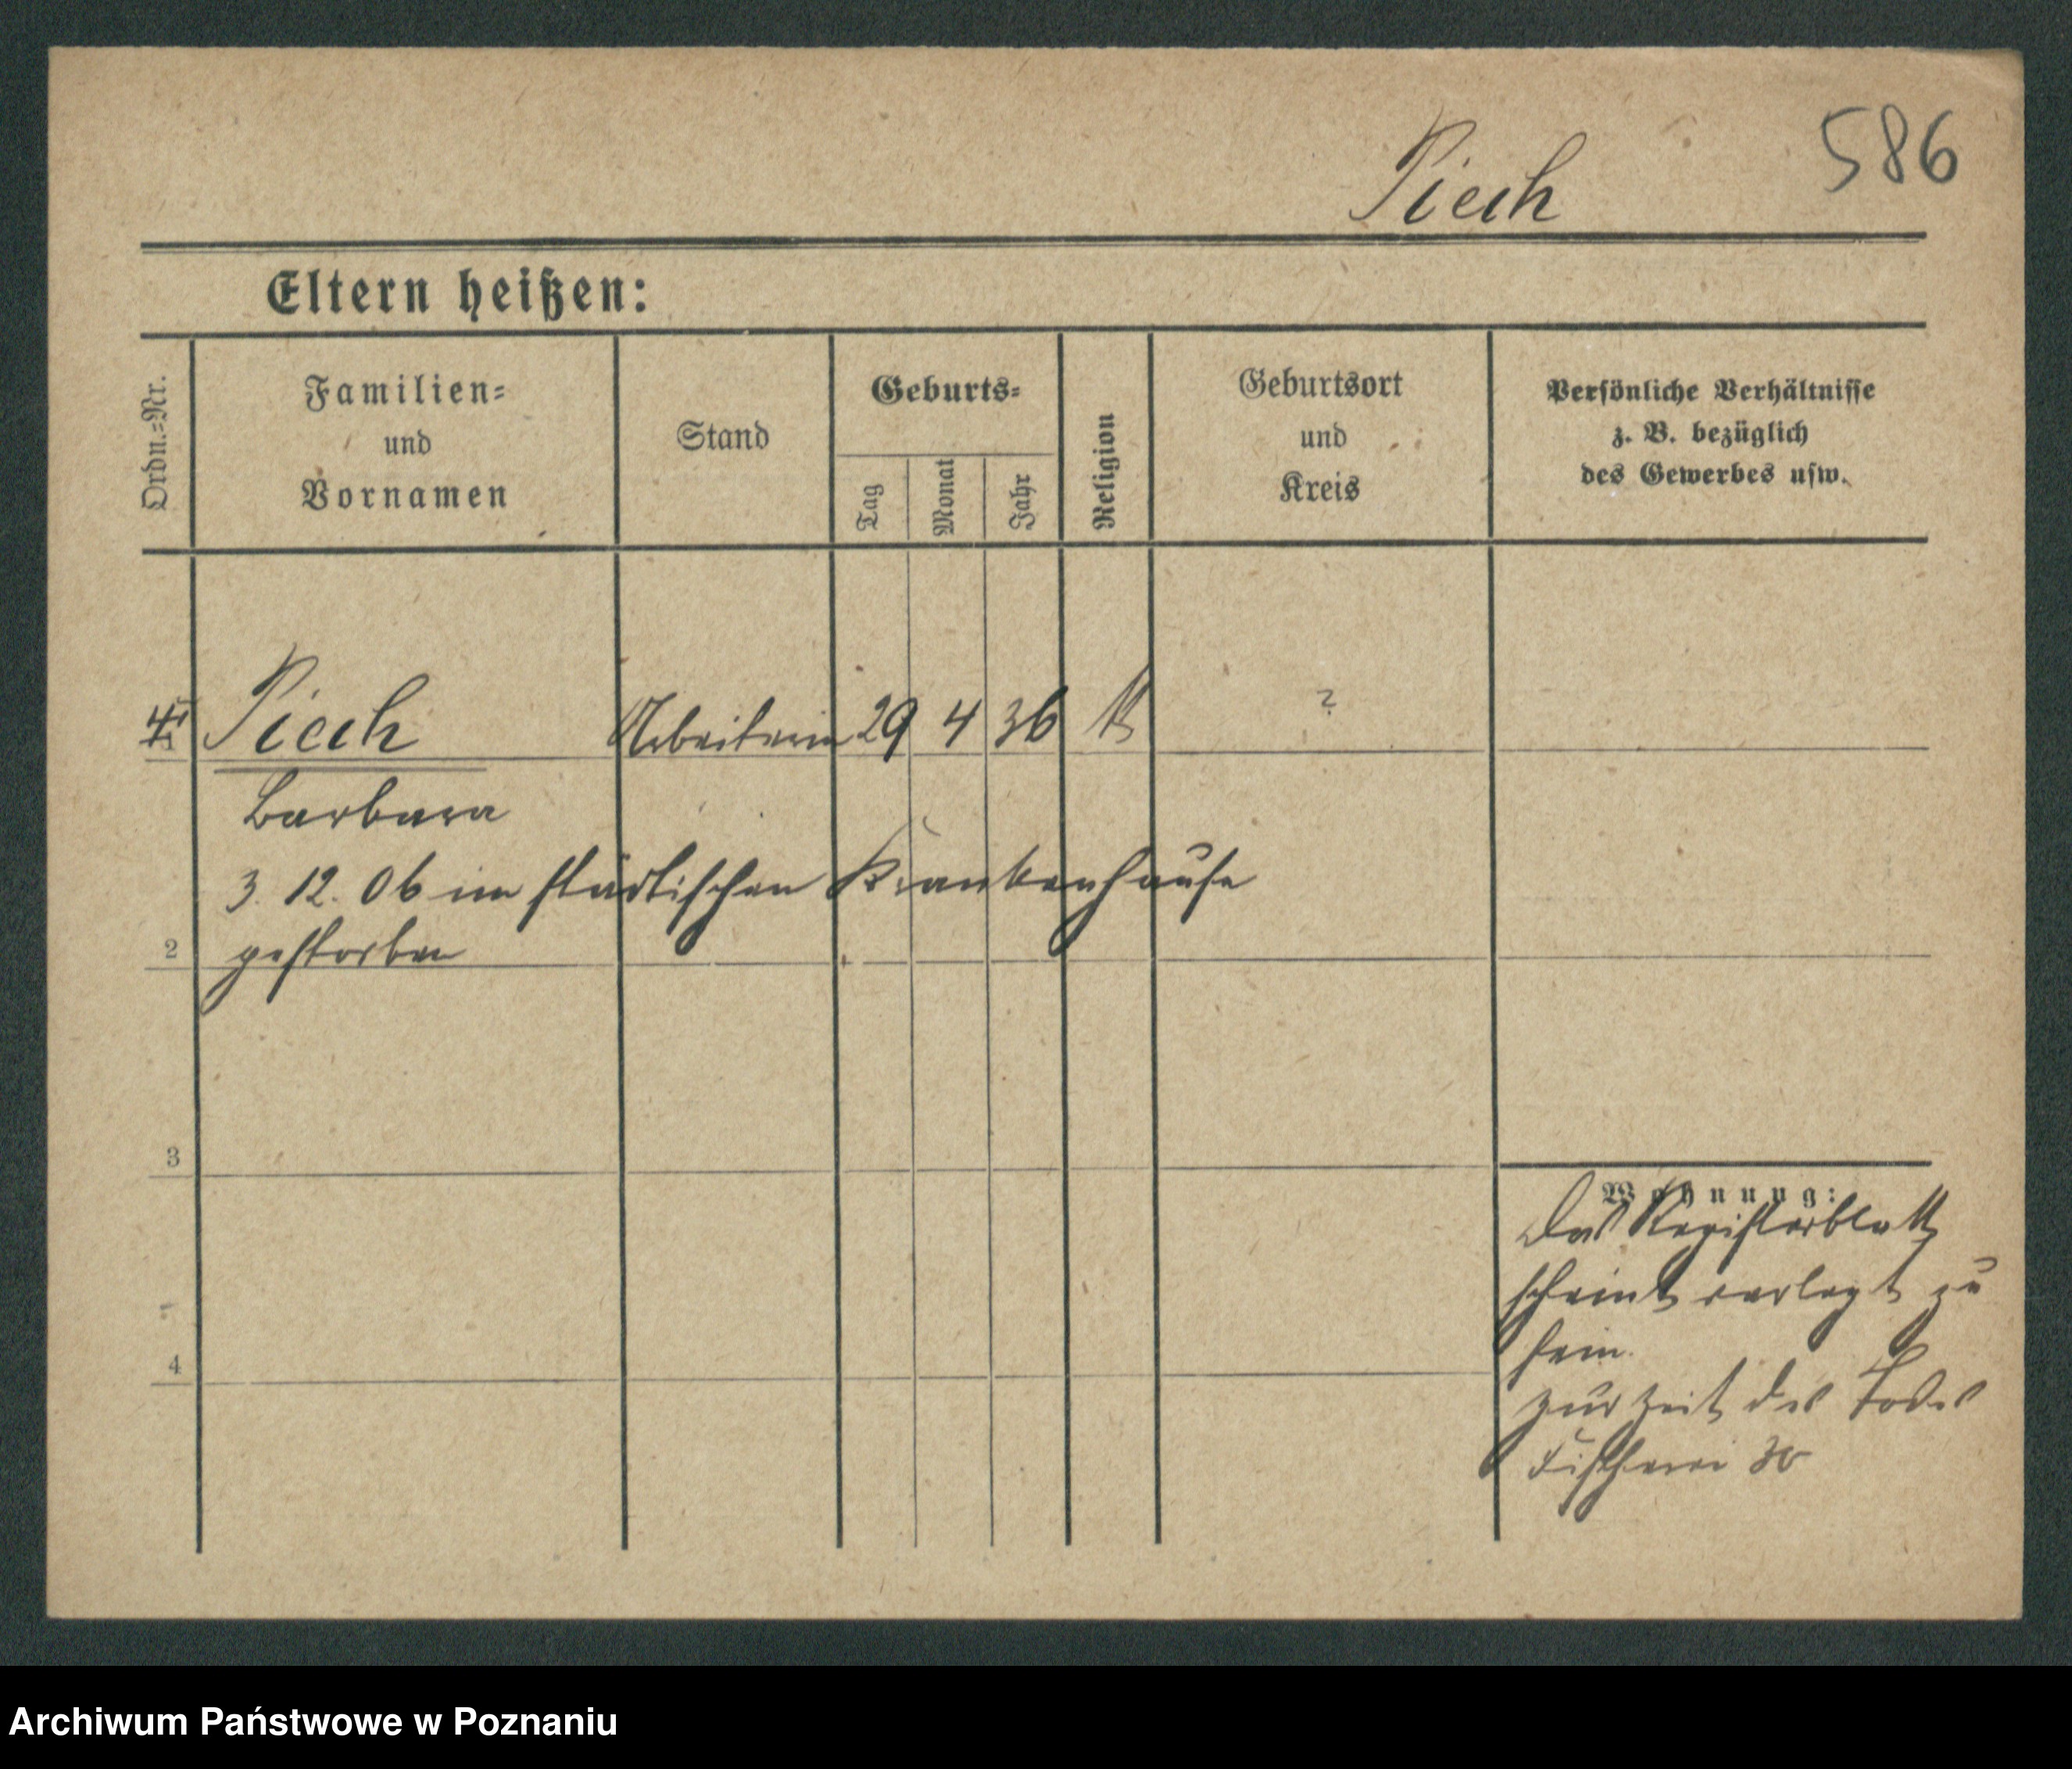 586
Piech
Eltern heißen:
Ordn.-Nr.
Familien-
und
Vornamen
Stand
Geburts-
Tag
Monat
Jahr
Religion
Geburtsort
und
Kreis
Persönliche Verhältnisse
z. B. bezüglich
des Gewerbes usw.
Piech Arbeiterin 29 4 36 K ?
Barbara
3. 12. 06 im städtischen Krankenhause
2 gestorben
3
Wohnung:
Das Registerblatt
scheint verlegt zu
sein.
4
zur Zeit des Todes
Fischerei 30
Archiwum Państwowe w Poznaniu